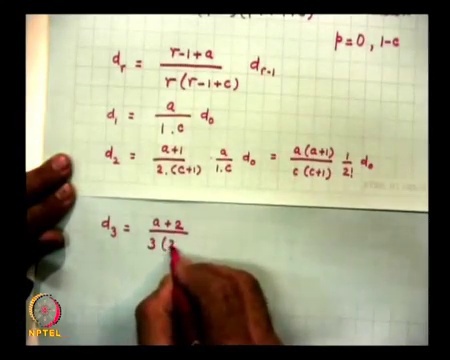 p=0, 1-c
d_r = \frac{r-1+a}{r(r-1+c)} d_{r-1}
d_1 = \frac{a}{1.c} d_0
d_2 = \frac{a+1}{2.(c+1)} \cdot \frac{a}{1.c} d_0 = \frac{a(a+1)}{c(c+1)} \frac{1}{2!} d_0
d_3 = \frac{a+2}{3(
NPTEL